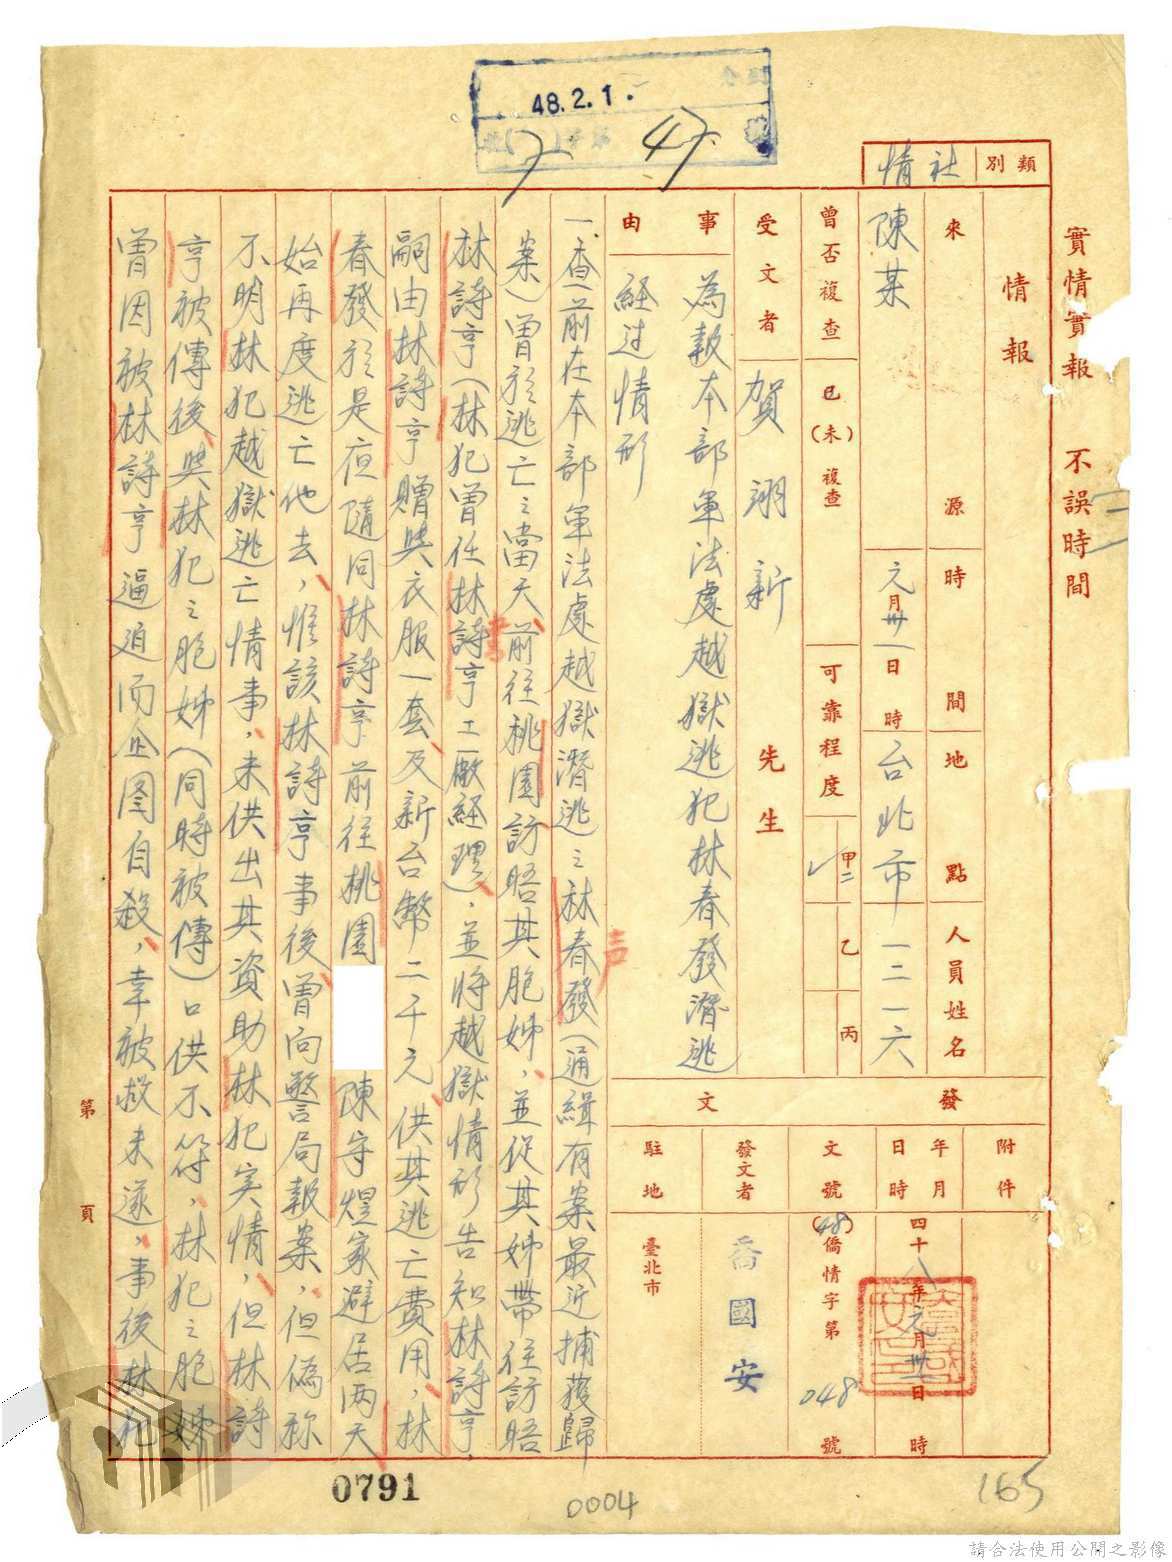 48.2.1.
47
實情實報 不誤時間
類別
社情
情報
來源
陳某
時間
元月卅一日 時
地點
台北市
人員姓名
一三一六
曾否複查
已(未)複查
可靠程度
甲二
乙
丙
受文者
賀翊新 先生
事由
為報本部軍法處越獄逃犯林春發潛逃
經过情形
發文
附件
年月日時
四十八年元月卅一日 時
文號
(48)僑情字第048號
發文者
喬國安
駐地
臺北市
一、查前在本部軍法處越獄潛逃之林春發(通緝有案最近捕獲歸
案)曾於逃亡之當天、前往桃園訪晤其胞姊、並促其姊帶往訪晤
林詩亨(林犯曾任林詩亨工廠經理)、並將越獄情形告知林詩亨,
嗣由林詩亨贈與衣服一套、及新台幣二千元、供其逃亡費用、林
春發於是夜隨同林詩亨前往桃園 陳守煋家避居两天
始再度逃亡他去、惟該林詩亨事後曾向警局報案、但偽称
不明林犯越獄逃亡情事、未供出其資助林犯实情、但林詩
亨被傳後、與林犯之胞姊(同時被傳)口供不符、林犯之胞姊
曾因被林詩亨逼迫而企图自殺、幸被救未遂、事後林犯
第 頁
0791
0004
165
請合法使用公開之影像